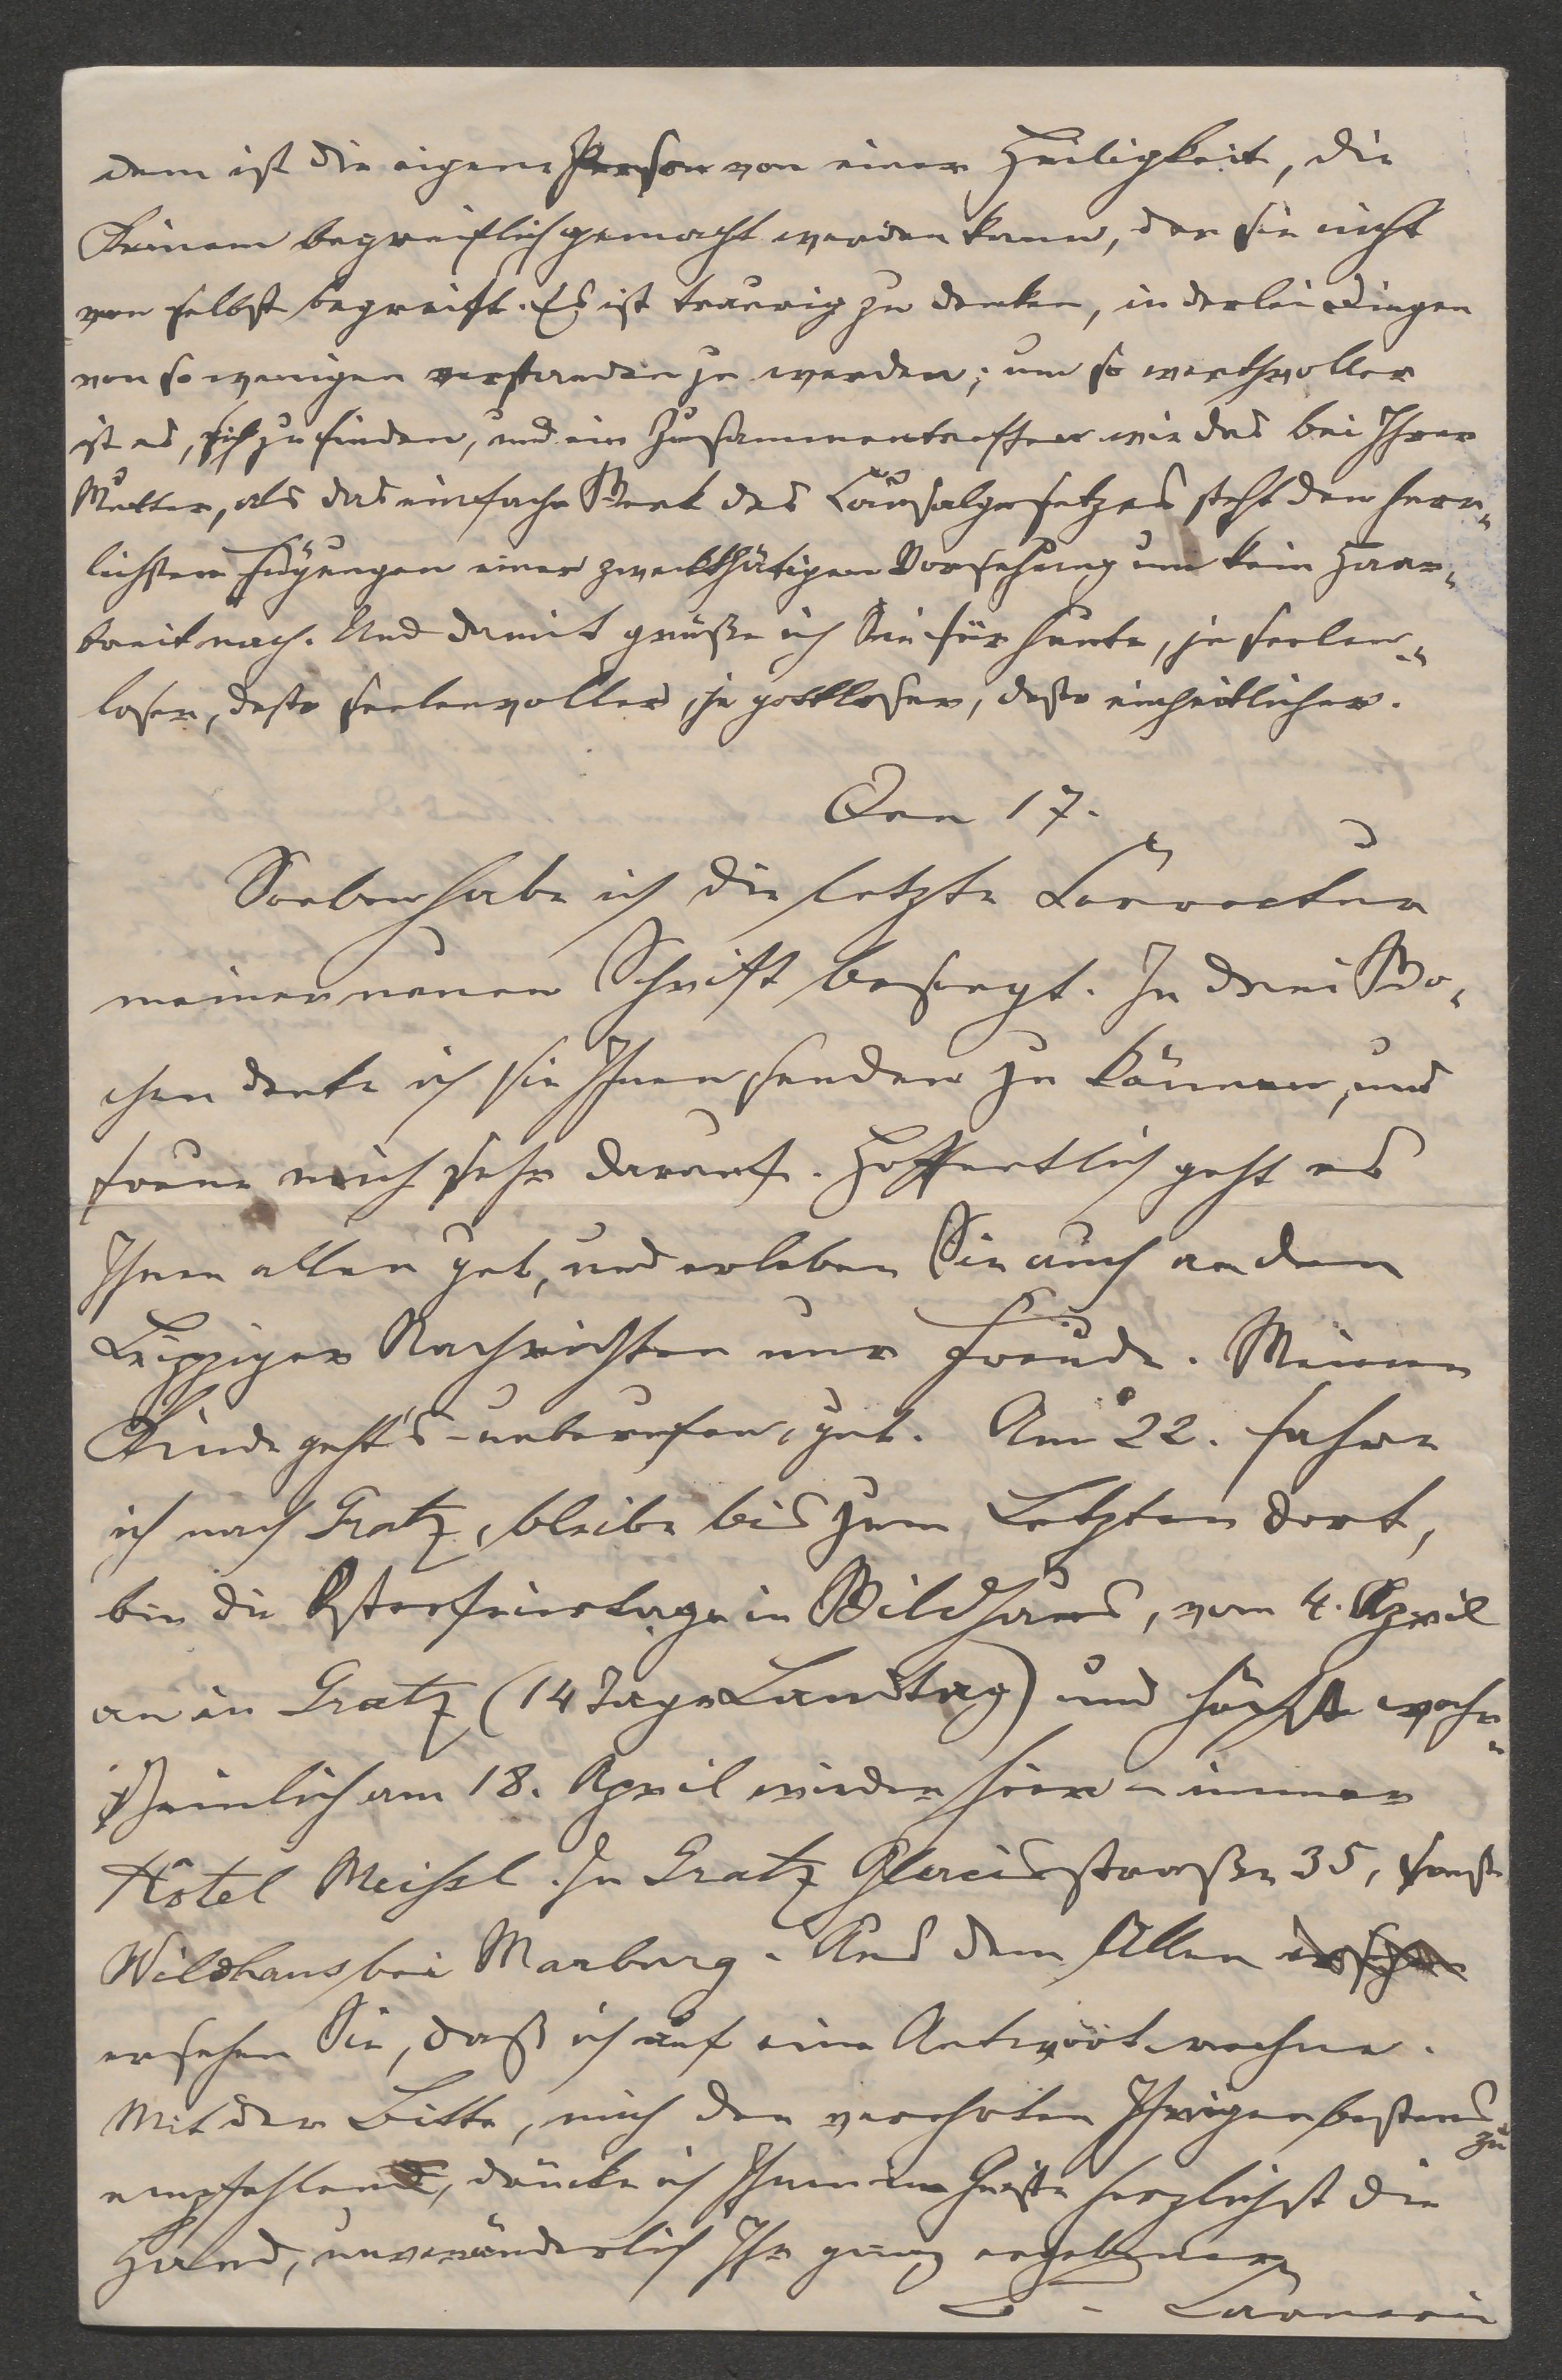 dem ist die eigene Person von einer Heiligkeit, die
Keinem begreiflich gemacht werden kann, der sie nicht
von selbst begreift. Es ist traurig zu denken, in derlei Dingen
von so wenigen verstanden zu werden; um so werthvoller
ist es, sich zu finden, und ein Zusammentreffen wie das bei Ihrer
Mutter, als das einfache Werk des Causalgesetzes steht den herr-
lichsten Fügungen einer zweckthätigen Vorsehung um kein Haar-
breit nach. Und damit grüße ich Sie für heute, je seelen-
loser, desto seelenvoller, je gottloser, desto einheitlicher.
Den 17.
Soeben habe ich die letzte Correctur
meiner neuen Schrift besorgt. In drei Wo-
chen denke ich sie Ihnen senden zu können, und
freue mich sehr darauf. Hoffentlich geht es
Ihnen allen gut, und erleben Sie auch an den
Leipziger Nachrichten nur Freude. Meinem
Kinde geht's – unberufen, gut. Am 22. fahre
ich nach Gratz, bleibe bis zum Letzten dort,
bin die Osterfeiertage in Wildhaus, vom 4. April
an in Gratz (14 Tage Landtag) und höchst wahr-
scheinlich am 18. April wieder hier – immer
Hôtel Meissl. In Gratz Glacisstraße 35, sonst
Wildhaus bei Marburg. Aus dem Allen
ersehen Sie, daß ich auf eine Antwort rechne.
Mit der Bitte, mich den verehrten Ihrigen bestens zu
empfehlen, drücke ich Ihnen im Geiste herzlichst die
Hand, unveränderlich Ihr ganz ergebener
B. Carneri